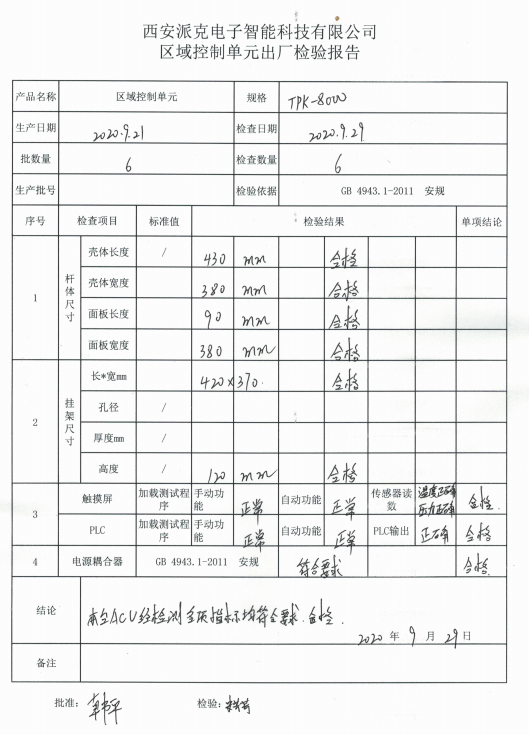 西安派克电子智能科技有限公司
区域控制单元出厂检验报告
产品名称 区域控制单元 规格 TPK-8000
生产日期 2020.9.21 检查日期 2020.9.29
批数量 6 检查数量 6
生产批号 检验依据 GB 4943.1-2011 安规
序号 检查项目 标准值 检验结果 单项结论
1 杆体尺寸 壳体长度 / 430 mm 合格
壳体宽度 380 mm 合格
面板长度 90 mm 合格
面板宽度 380 mm 合格
2 挂架尺寸 长*宽mm 420×370. 合格
孔径 /
厚度mm /
高度 / 120 mm 合格
3 触摸屏 加载测试程序 手动功能 正常 自动功能 正常 传感器读数 温度正确 压力正确 合格.
PLC 加载测试程序 手动功能 正常 自动功能 正常 PLC输出 正确 合格
4 电源耦合器 GB 4943.1-2011 安规 符合要求 合格.
结论 ACU经检测 指标均符合要求. 合格.
2020 年 9 月 29 日
备注
批准: 韩平 检验: